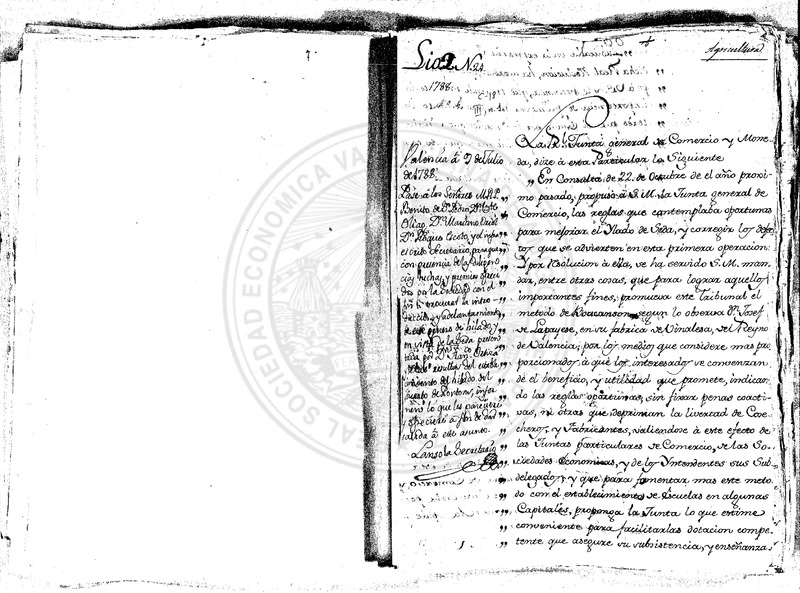 Agricultura
Lio 2 N. 24
1788.
Valencia à 9 de Julio
de 1788.
Pase à los Señores M.R.P.
Benito, de
Dn. Mariano
Dn. Roque Escoto, y el infra
escrito Secretario, para que
con presencia de las diligen
cias hechas, y premios ofreci
dos por la Sociedad con el
fin de procurar la intro
duccion, y adelantamiento
de este genero de hilado, y
en vista de la Seda presen
tada por
resultas del estable
cimiento del hilado del
Puerto de infor
men lo que les pareciere
y ofreciere à fin de dar
salida à este asunto.
Lansola Secretario
La Rl. Junta general de Comercio y Mone
da, dize à esta Particular lo Siguiente
„ En Consulta de 22. de Octubre de el año proxi
„ mo pasado, propuso à S. M. la Junta general de
„ Comercio, las reglas que contemplaba oportunas
„ para mejorar el Ylado de Seda, y corregir los defec
„ tos que se advierten en esta primera operacion:
„ Y por Resolucion à ella, se ha servido S. M. man
„ dar, entre otras cosas, que para lograr aquellos
„ importantes fines, promueva este Tribunal el
„ metodo de Vocanson, segun lo observa Dn. Josef
„ de Lapayese, en su fabrica de Vinalesa, de el Reyno
„ de Valencia; por los medios que considere mas pro
„ porcionados à que los interesados se convenzan
„ de el beneficio, y utilidad que promete, indican
„ do las reglas oportunas, sin fixar penas coacti
„ vas, ni otras que depriman la livertad de Cose
„ cheros, y Fabricantes, valiendose à este efecto de
„ las Juntas particulares de Comercio, de las So
„ ciedades Economicas, y de los Yntendentes sus Sub
„ delegados; y que para fomentar mas este meto
„ do con el establecimiento de Escuelas en algunas
„ Capitales, proponga la Junta lo que estime
„ conveniente para facilitarlas dotacion compe
„ tente que asegure su subsistencia, y enseñanza